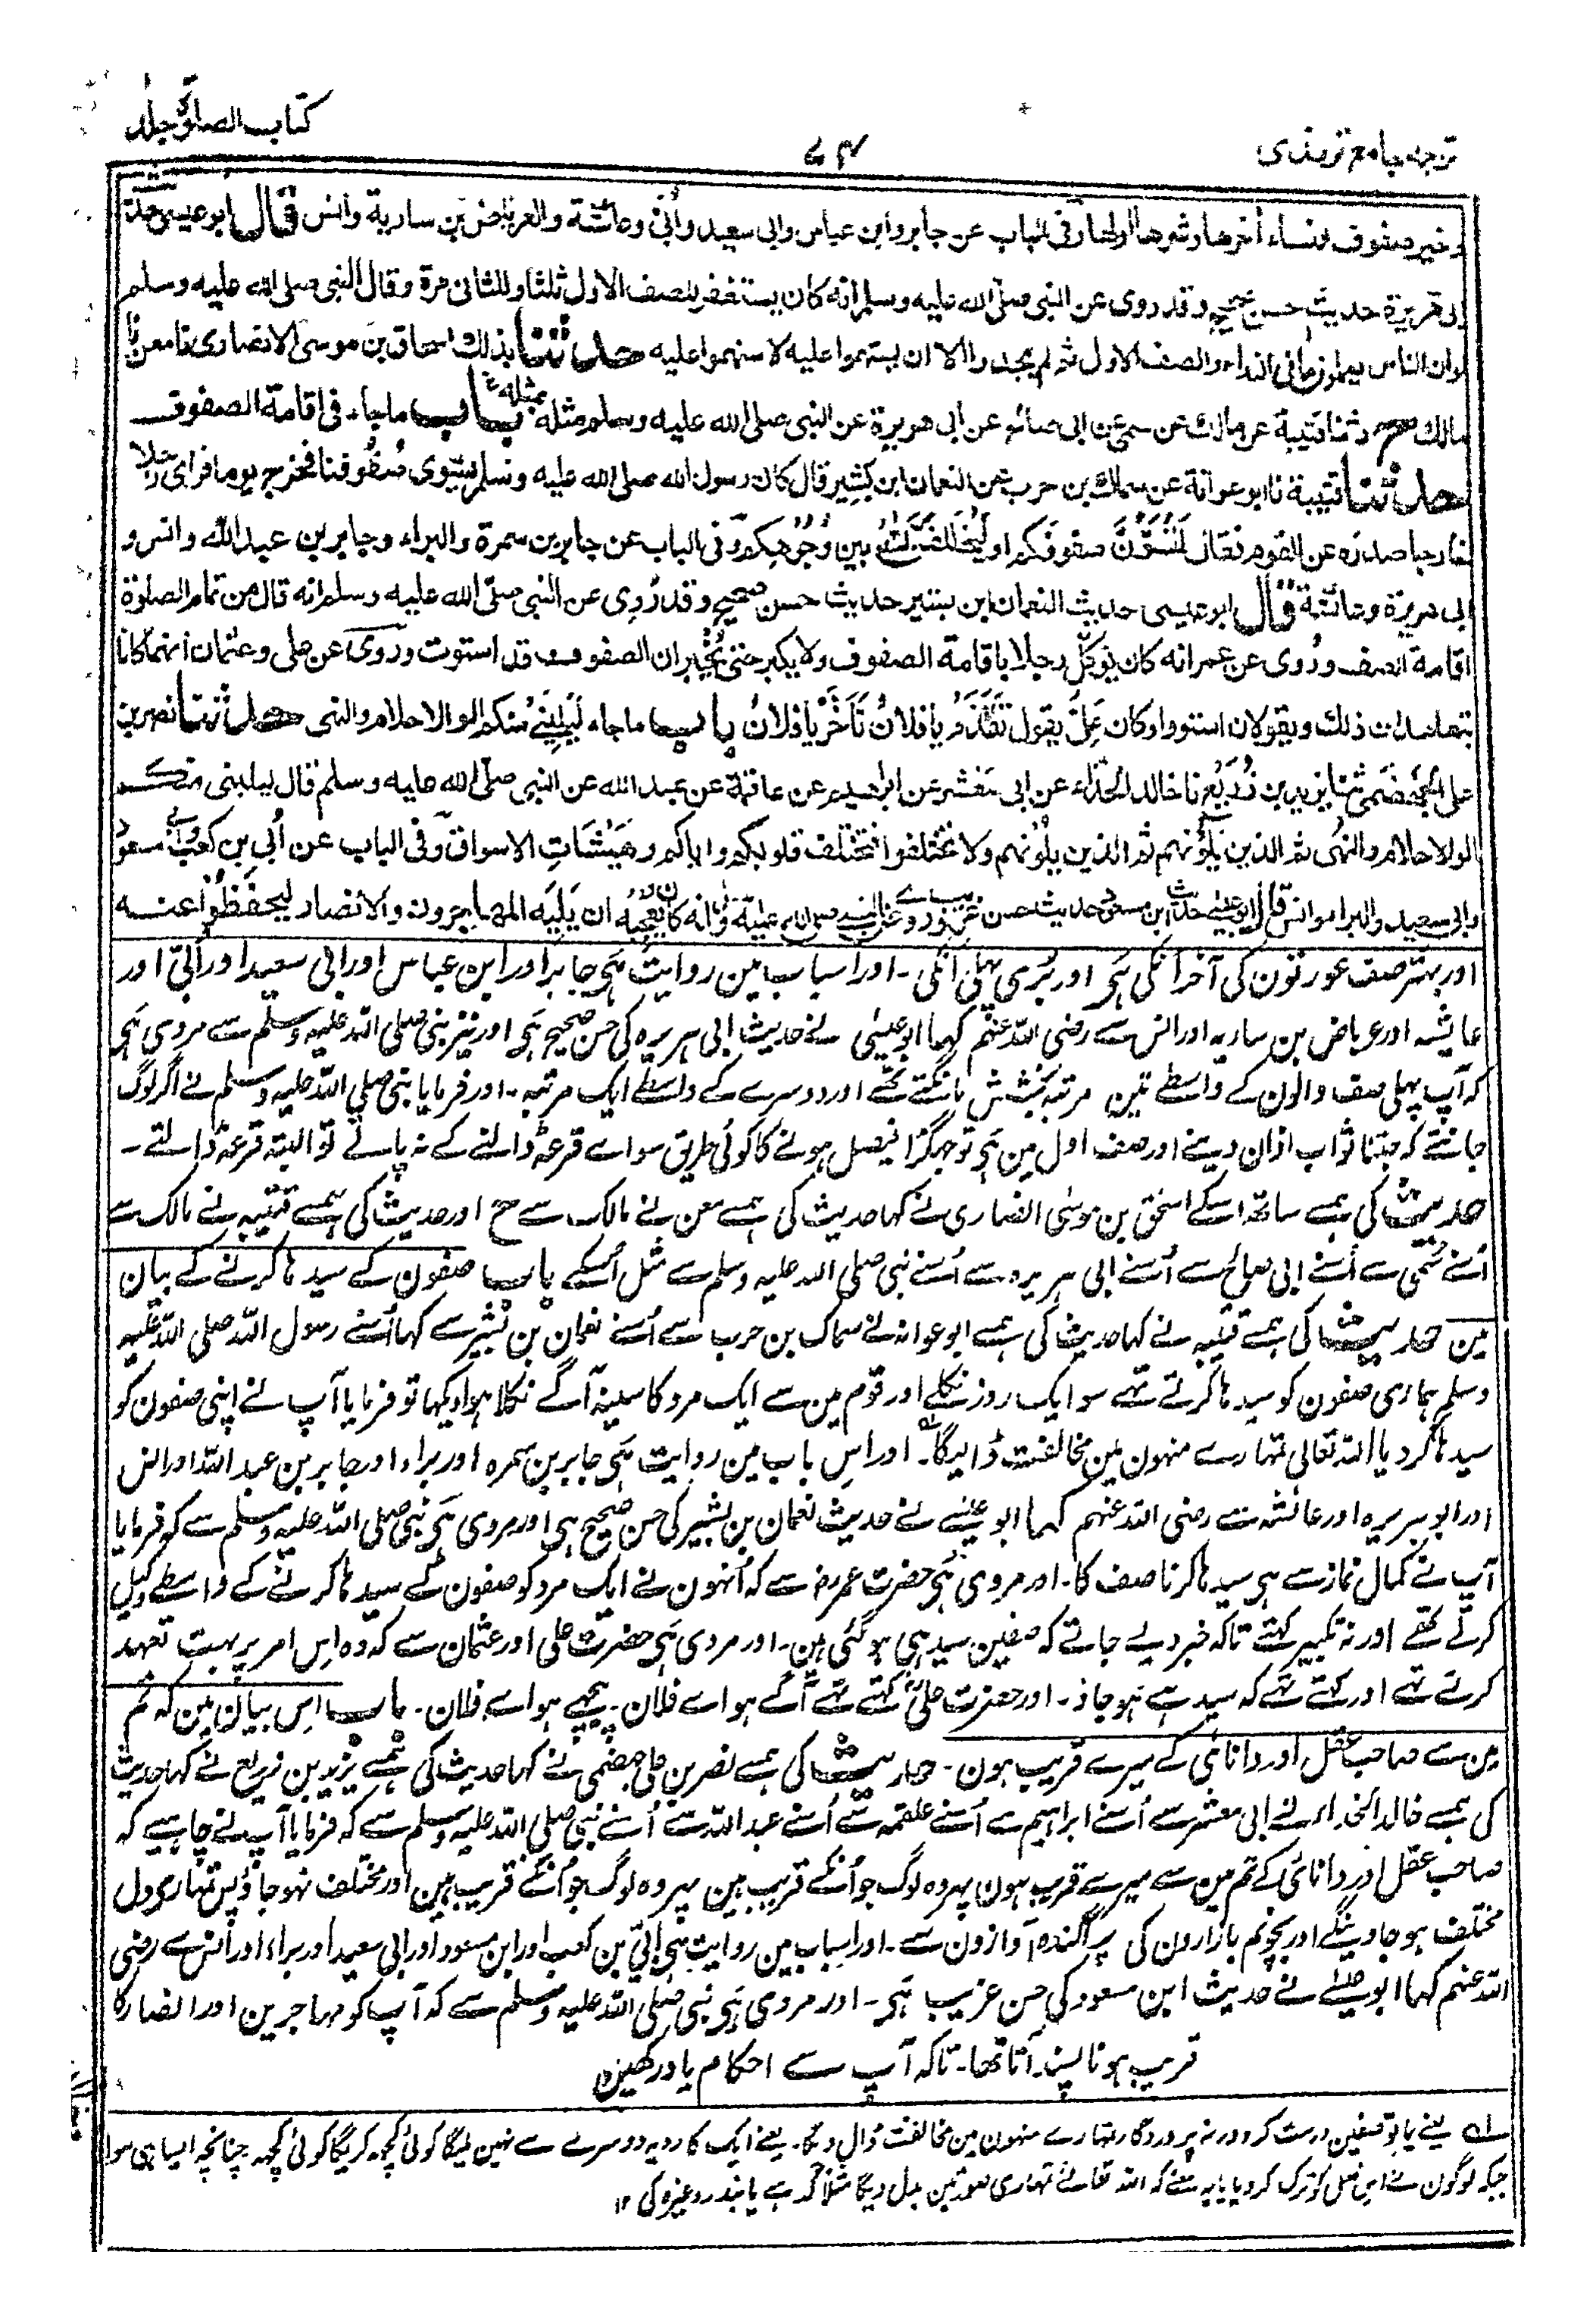 ترجمہ جامع ترمذی
۷۴
کتاب الصلوٰۃ جلد
وخیر صفوف النساء اٰخرها وشرها اولها وفی الباب عن جابر وابن عباس وابی سعید واُبیّ وعائشة والعرباض بن ساریة وانس قال ابو عیسی حدیث
ابی هریرة حدیث حسن صحیح وقد روی عن النبی صلی الله علیه وسلم انه کان یستغفر للصف الاول ثلثا وللثانی مرة وقال النبی صلی الله علیه وسلم
لوان الناس یعلمون ما فی النداء والصف الاول ثم لم یجدوا الا ان یستهموا علیه لاستهموا علیه حدثنا بذلک اسحاق بن موسی الانصاری نا معن نا
مالک ح وثنا قتیبة عن مالک عن سمی عن ابی صالح عن ابی هریرة عن النبی صلی الله علیه وسلم مثله باب ماجاء فی اقامة الصفوف
حدثنا قتیبة نا ابو عوانة عن سماک بن حرب عن النعمان ابن بشیر قال کان رسول الله صلی الله علیه وسلم یسوّی صُفوفنا فخرج یوما فرای رجلا
خارجا صدره عن القوم فقال لَتُسَوُّنَّ صفوفکم او لیخالفن الله بین وُجُوهکم وفی الباب عن جابر بن سمرة والبراء وجابر بن عبد الله وانس و
ابی هریرة وعائشة قال ابو عیسی حدیث النعمان ابن بشیر حدیث حسن صحیح وقد رُوی عن النبی صلی الله علیه وسلم انه قال من تمام الصلوٰة
اقامة الصف ورُوی عن عمر انه کان یُوکّل رجلا باقامة الصفوف ولا یکبر حتی یُخبر ان الصفوف قد استوت ورُوی عن علی وعثمان انهما کانا
یتعاهدان ذلک ویقولان استووا وکان علیٌّ یقول تقدَّم یا فلانُ تاَخَّر یا فلانُ باب ماجاء لِیَلِیَنِی منکم اولوا الاحلام والنهی حدثنا نصر بن
علی الجهضمی ثنا یزید بن زُرَیع نا خالد الحذّاء عن ابی معشر عن ابراهیم عن علقمة عن عبد الله عن النبی صلی الله علیه وسلم قال لیلینی منکم
اولوا الاحلام والنهی ثم الذین یَلُونهم ثم الذین یلُونهم ولا تختلفوا فتختلف قلوبکم وایاکم وهَیْشَاتِ الاسواق وفی الباب عن اُبی بن کعب وابی مسعود
وابی سعید والبراء وانس قال ابو عیسی حدیث ابن مسعود حدیث حسن غریب وروی عن النبی صلی الله علیه وسلم انه کان یُعجبه ان یَلِیَه المهاجرون والانصار لیحفظوا عنه
اور بہتر صف عورتون کی آخر انکی ہی اور بُری پہلی انکی ۔ اور اس باب مین روایت ہی جابر اور ابن عباس اور ابی سعید اور اُبیّ اور
عایشہ اور عرباض بن ساریہ اور انس سے رضی اللہ عنہم کہا ابو عیسیٰ نے حدیث ابی ہریرہ کی حسن صحیح ہی اور نیز نبی صلی اللہ علیہ وسلم سے مروی ہی
کہ آپ پہلی صف والون کے واسطے تین مرتبہ بخشش مانگتے تھے اور دوسرے کے واسطے ایک مرتبہ ۔ اور فرمایا نبی صلی اللہ علیہ وسلم نے اگر لوگ
جانتے کہ جتنا ثواب اذان دینے اور صف اول مین ہی تو جھگڑا فیصل ہونے کا کوئی طریق سواے قرعہ ڈالنے کے نہ پاتے تو البتہ قرعہ ڈالتے ۔
حدیث کی ہمسے ساتھ اسکے اسحٰق بن موسیٰ انصاری نے کہا حدیث کی ہمسے معن نے مالک سے ح اور حدیث کی ہمسے قتیبہ نے مالک سے
اُسنے سُمی سے اُسنے ابی صالح سے اُسنے ابی ہریرہ سے اُسنے نبی صلی اللہ علیہ وسلم سے مثل اُسکے باب صفون کے سیدھا کرنے کے بیان
مین حدیث کی ہمسے قتیبہ نے کہا حدیث کی ہمسے ابو عوانہ نے سماک بن حرب سے اُسنے نعمان بن بشیر سے کہا اُسنے رسول اللہ صلی اللہ علیہ
وسلم ہماری صفون کو سیدھا کرتے تھے سو ایک روز نکلے اور قوم مین سے ایک مرد کا سینہ آگے نکلا ہوا دیکھا تو فرمایا آپ نے اپنی صفون کو
سیدھا کرو یا اللہ تعالی تمہارے منہون مین مخالفت ڈالیگا ۔ اور اس باب مین روایت ہی جابر بن سمرہ اور براء اور جابر بن عبد اللہ اور انس
اور ابو ہریرہ اور عائشہ سے رضی اللہ عنہم کہا ابو عیسے نے حدیث نعمان بن بشیر کی حسن صحیح ہی اور مروی ہی نبی صلی اللہ علیہ وسلم سے کہ فرمایا
آپ نے کمال نماز سے ہی سیدھا کرنا صف کا ۔ اور مروی ہی حضرت عمر رض سے کہ اُنہون نے ایک مرد کو صفون کے سیدھا کرنے کے واسطے وکیل
کرتے تھے اور نہ تکبیر کہتے تاکہ خبر دیے جاتے کہ صفین سیدہی ہو گئی ہین ۔ اور مروی ہی حضرت علی اور عثمان سے کہ وہ اس امر پر بہت تعہد
کرتے تھے اور کہتے تھے کہ سیدھے ہو جاؤ ۔ اور حضرت علی کہتے تھے آگے ہو اے فلان ۔ پیچھے ہو اے فلان ۔ باب اس بیان مین کہ تم
مین سے صاحب عقل اور دانائی کے میرے قریب ہون ۔ حدیث کی ہمسے نصر بن علی جہضمی نے کہا حدیث کی ہمسے یزید بن زریع نے کہا حدیث
کی ہمسے خالد الحذاء نے ابی معشر سے اُسنے ابراہیم سے اُسنے علقمہ سے اُسنے عبد اللہ سے اُسنے نبی صلی اللہ علیہ وسلم سے کہ فرمایا آپ نے چاہیے کہ
صاحب عقل اور دانائی کے تم مین سے میرے قریب ہون پہر وہ لوگ جو اُنکے قریب ہین پہر وہ لوگ جو اُنکے قریب ہین اور مختلف نہو جاؤ پس تمہاری دل
مختلف ہو جاوینگے اور بچو تم بازارون کی پراگندہ آوازون سے ۔ اور اس باب مین روایت ہی اُبیّ بن کعب اور ابن مسعود اور ابی سعید اور براء اور انس سے رضی
اللہ عنہم کہا ابو عیسے نے حدیث ابن مسعود کی حسن غریب ہی ۔ اور مروی ہی نبی صلی اللہ علیہ وسلم سے کہ آپ کو مہاجرین اور انصار کا
قریب ہونا پسند آتا تھا ۔ تاکہ آپ سے احکام یاد رکھین
لہ یعنے یا تو صفین درست کرو ورنہ پروردگار تمہارے منہون مین مخالفت ڈال دیگا ۔ یعنے ایک کا رویہ دوسرے سے نہین ملیگا کوئی کچھ کریگا کوئی کچھ چنانچہ ایسا ہی ہوا
جبکہ لوگون نے اس فعل کو ترک کر دیا یا یہ معنے کہ اللہ تعالے تمہاری صورتین بدل دیگا مثلاً گدہے یا بندر وغیرہ کی ۱۲